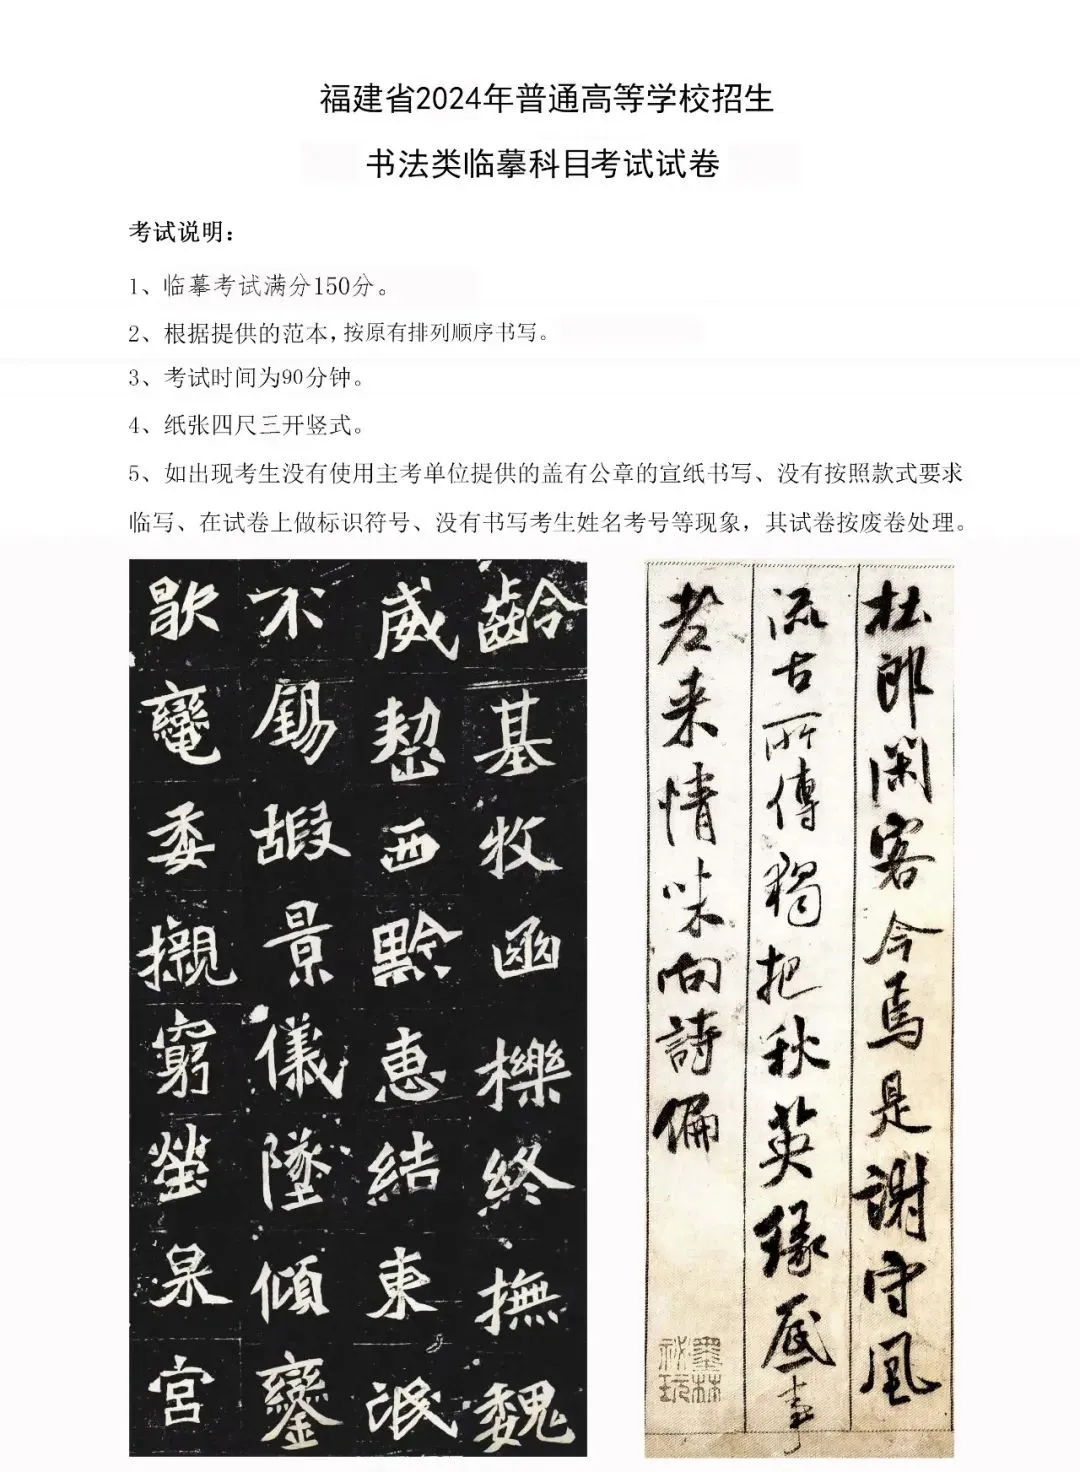 福建省2024年普通高等学校招生
书法类临摹科目考试试卷
考试说明：
1、临摹考试满分150分。
2、根据提供的范本，按原有排列顺序书写。
3、考试时间为90分钟。
4、纸张四尺三开竖式。
5、如出现考生没有使用主考单位提供的盖有公章的宣纸书写、没有按照款式要求
临写、在试卷上做标识符号、没有书写考生姓名考号等现象，其试卷按废卷处理。
齡基牧函櫟終撫魏
威西黔恵結東氓
不錫嘏景儀墜傾鑾
歇委櫬窮塋泉宮
杜郎閑客今焉是謝守風
流古所傳獨把秋英緣底事
老来情味向詩偏
墨林
秘玩